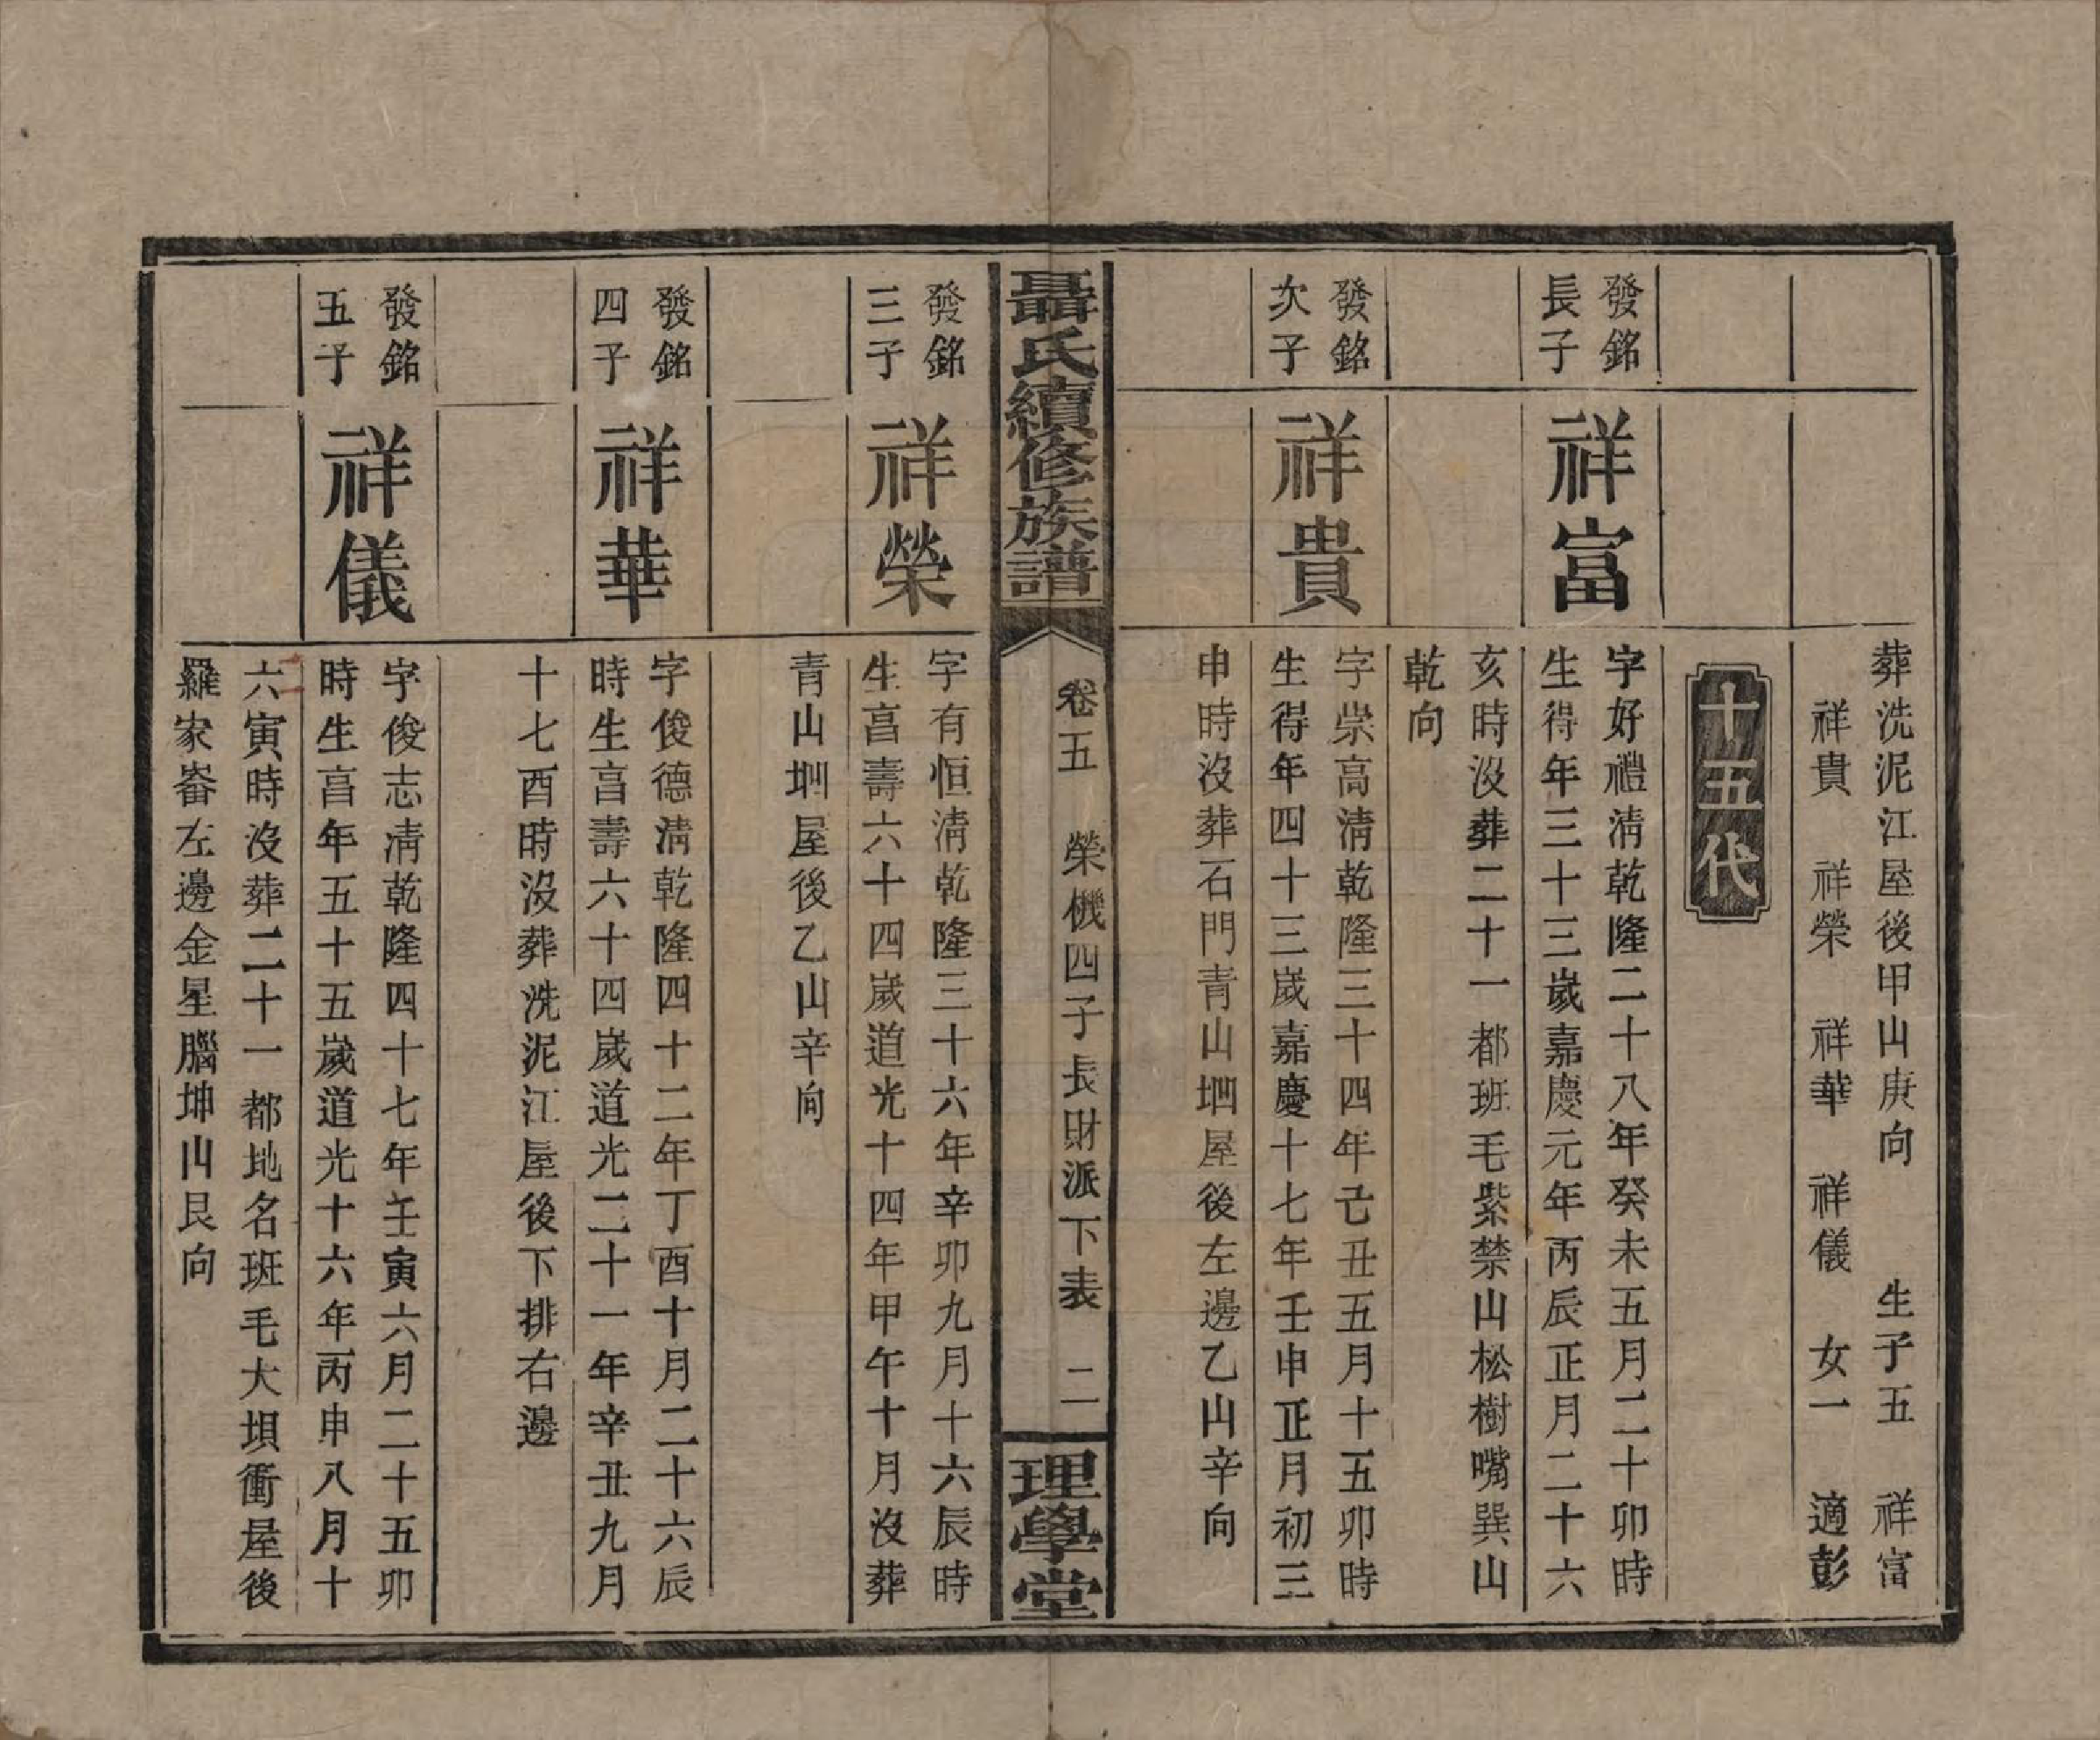 葬洗泥江屋後甲山庚向　生子五　祥富
祥貴　祥榮　祥華　祥儀　女一　適彭
十五代
發銘
長子
祥富
字好禮清乾隆二十八年癸未五月二十卯時
生得年三十三歲嘉慶元年丙辰正月二十六
亥時沒葬二十一都班毛紫禁山松樹嘴巽山
乾向
發銘
次子
祥貴
字崇高清乾隆三十四年己丑五月十五卯時
生得年四十三歲嘉慶十七年壬申正月初三
申時沒葬石門青山堋屋後左邊乙山辛向
聶氏續修族譜
卷五　榮機四子長財派下表　二
理學堂
發銘
三子
祥榮
字有恒清乾隆三十六年辛卯九月十六辰時
生享壽六十四歲道光十四年甲午十月沒葬
青山堋屋後乙山辛向
發銘
四子
祥華
字俊德清乾隆四十二年丁酉十月二十六辰
時生享壽六十四歲道光二十一年辛丑九月
十七酉時沒葬洗泥江屋後下排右邊
發銘
五子
祥儀
字俊志清乾隆四十七年壬寅六月二十五卯
時生享年五十五歲道光十六年丙申八月十
六寅時沒葬二十一都地名班毛大垻衝屋後
羅家崙左邊金星腦坤山艮向